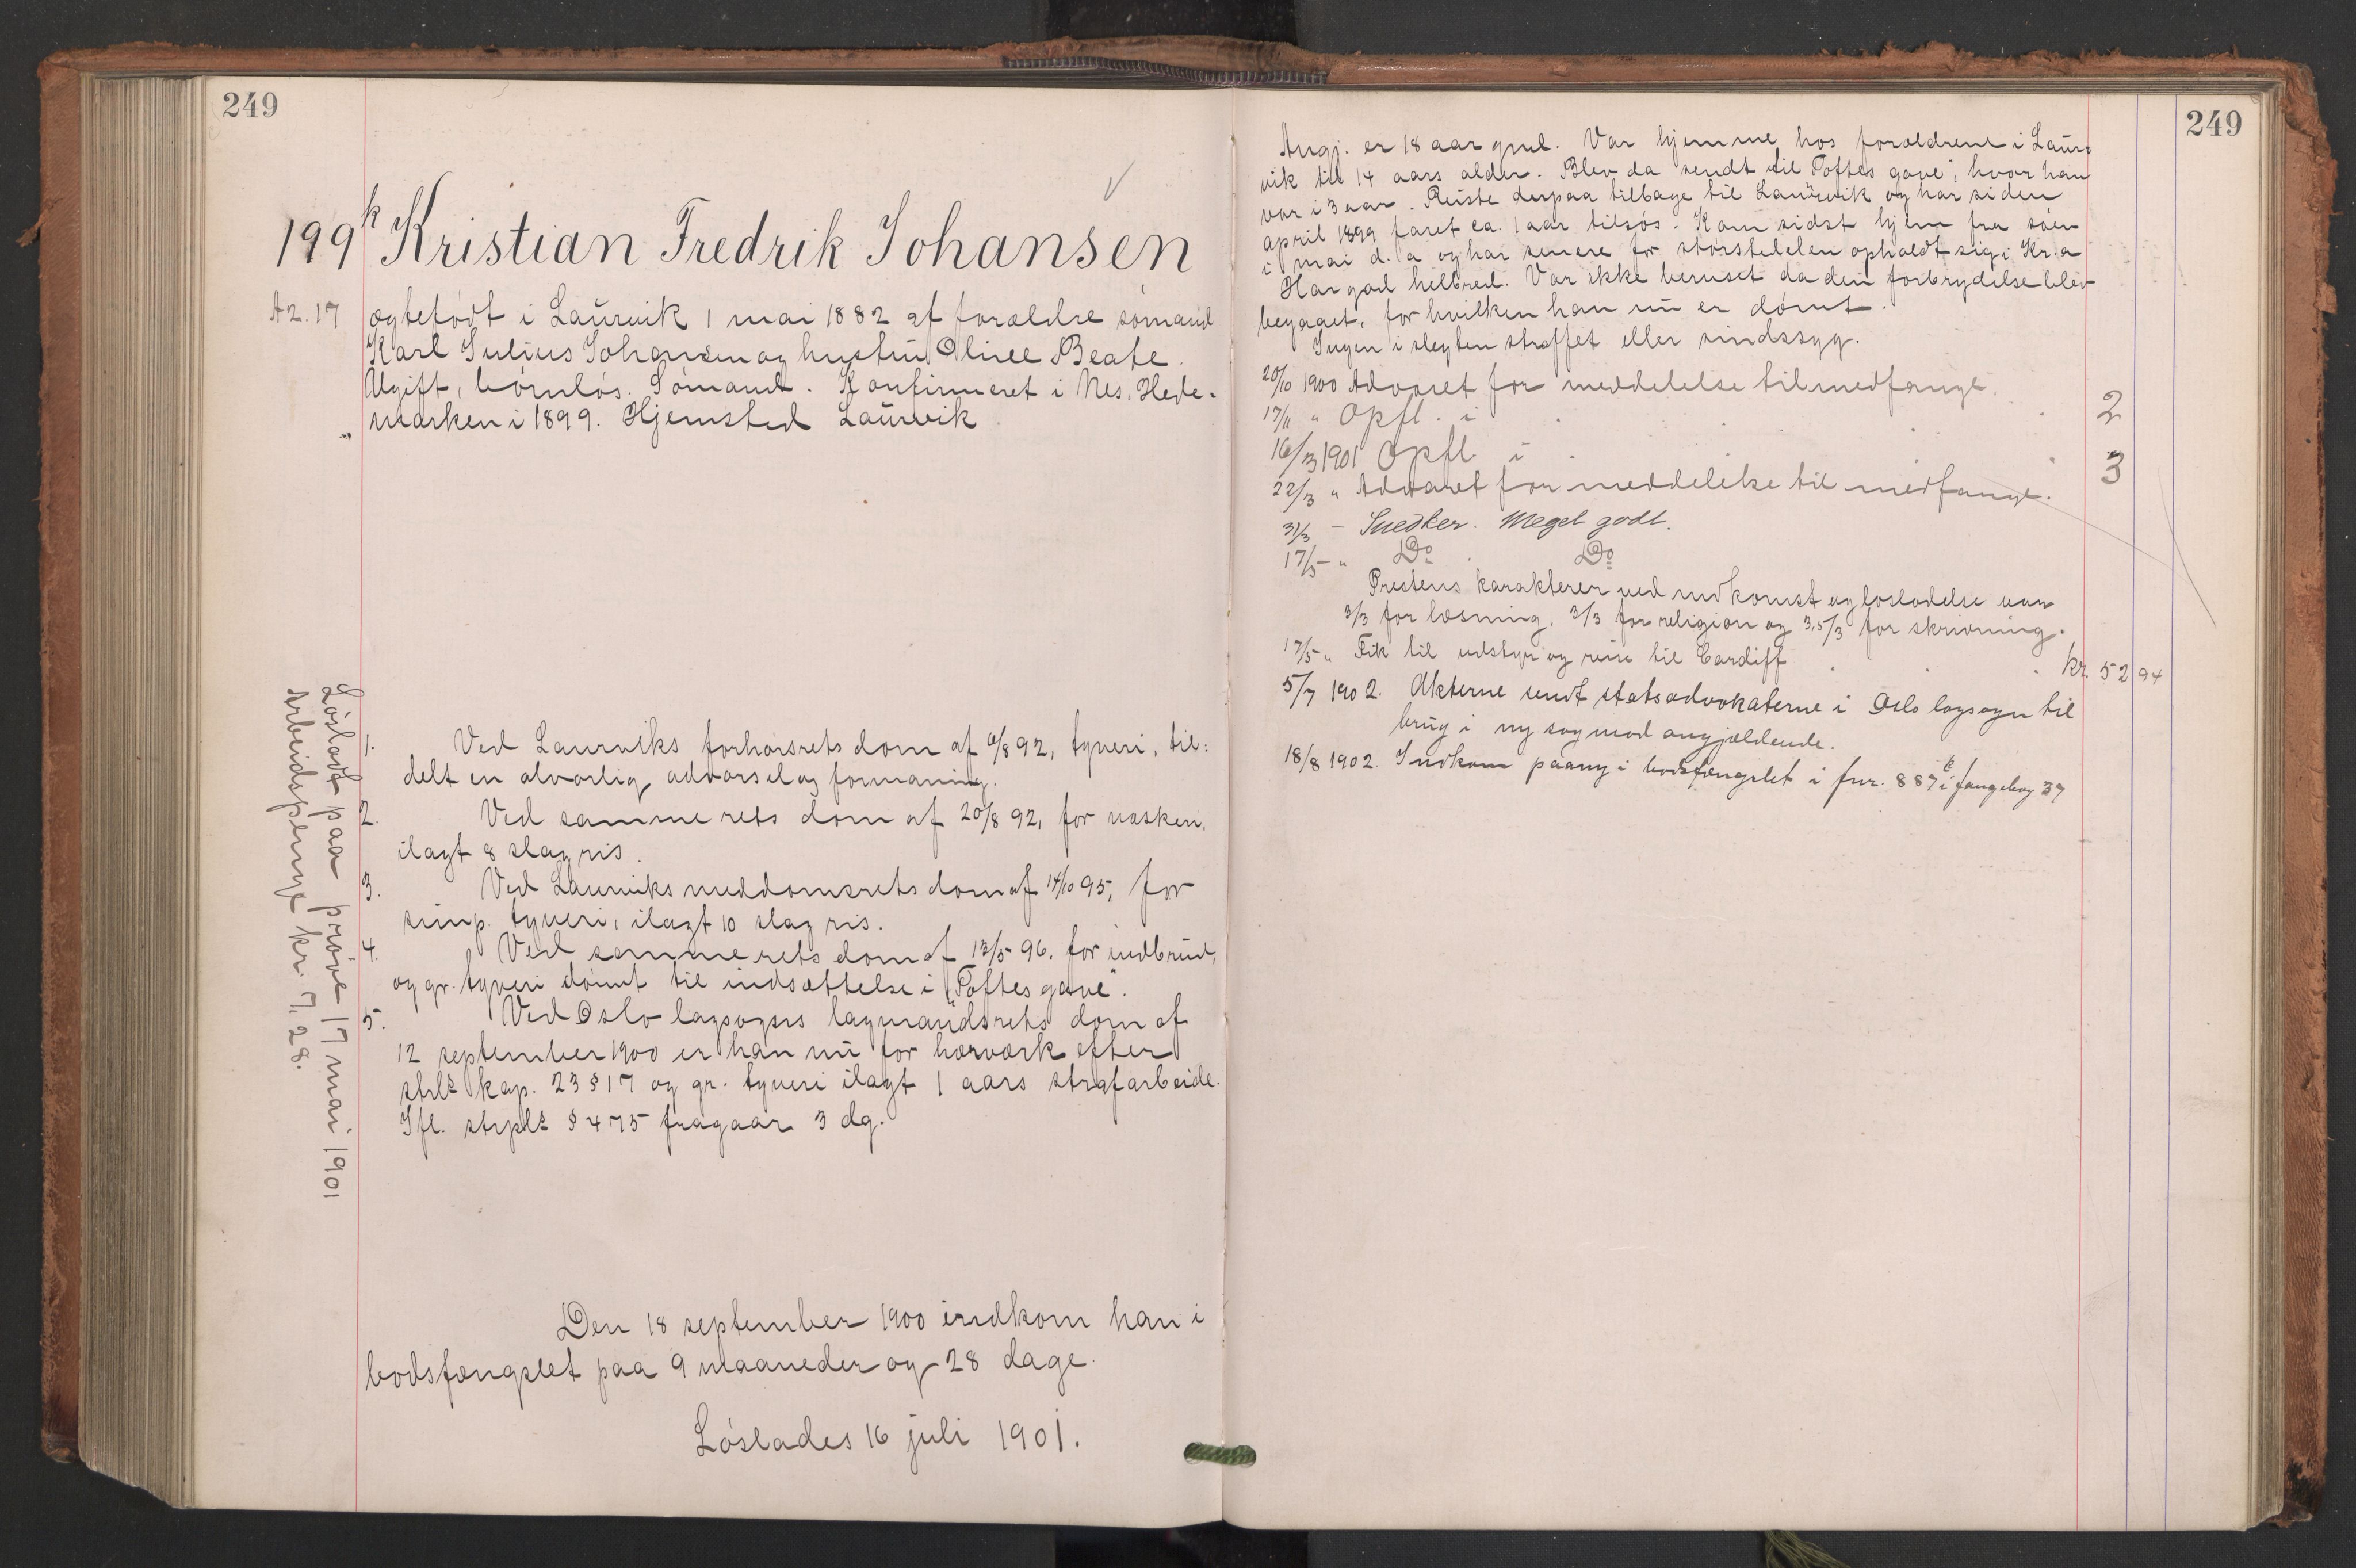 249
199k Kristian Fredrik Johansen
A2.17 ægtefødt i Laurvik 1 mai 1882 af forældre sømand
Karl Julius Johansen og hustru Beate.
Ugift, børnløs. Sømand. Konfirmeret i Nes, Hede-
marken i 1899. Hjemsted Laurvik
1. Ved Laurviks forhørsrets dom af 92, tyveri, til:
delt en alvorlig advarsel og formaning.
2. Ved samme rets dom af 20/8 92, for nasken,
ilagt 8 slag ris.
3. Ved Laurviks meddomsrets dom af 14/10 95, for
simp. tyveri, ilagt 10 slag ris.
4. Ved samme rets dom af 13/5 96. for indbrud,
og gr. tyveri dømt til indsættelse i "Toftes gave".
5. Ved Oslo lagsogns lagmandsrets dom af
12 september 1900 er han nu for hærværk efter
strls kap. 23 § 17 og gr. tyveri ilagt 1 aars strafarbeide.
Ifl. strpls § 475 fragaar 3 dg.
Løsladt paa prøve 17 mai 1901
Arbeidspenge kr. 7,28.
Den 18 september 1900 indkom han i
bodsfængslet paa 9 maaneder og 28 dage.
Løslades 16 juli 1901.
249
Angj. er 18 aar gml. Var hjemme hos forældrene i Laur-
vik til 14 aars alder. Blev da sendt til Toftes gave, hvor han
var i 3 aar. Reiste derpaa tilbage til Laurvik og har siden
april 1899 faret ca. 1 aar tilsøs. Kom sidst hjem fra søen
i mai d. a og har senere for størstedelen opholdt sig i Kr.a
Har god helbred. Var ikke beruset da den forbrydelse blev
begaaet, for hvilken han nu er dømt.
Ingen i slegten straffet eller sindssyg.
20/10 1900 Advaret for meddelelse til medfange.
17/11 " Opfl. i . . . 2
16/3 1901 Opfl i . . . 3
22/3 " Advaret for meddelelse til medfange.
31/3 – Snedker. Meget godt.
17/5 " Do Do
Prestens karakterer ved indkomst og løsladelse var
3/3 for læsning, 3/3 for religion og 3,5/3 for skrivning.
17/5 " Fik til udstyr og reise til Cardiff . . . kr. 52 94
5/7 1902. Akterne sendt statsadvokaterne i Oslo lagsogn til
brug i ny sag mod angjældende.
18/8 1902. Indkom paany i bodsfængslet i fnr. 887 i fangebog 37